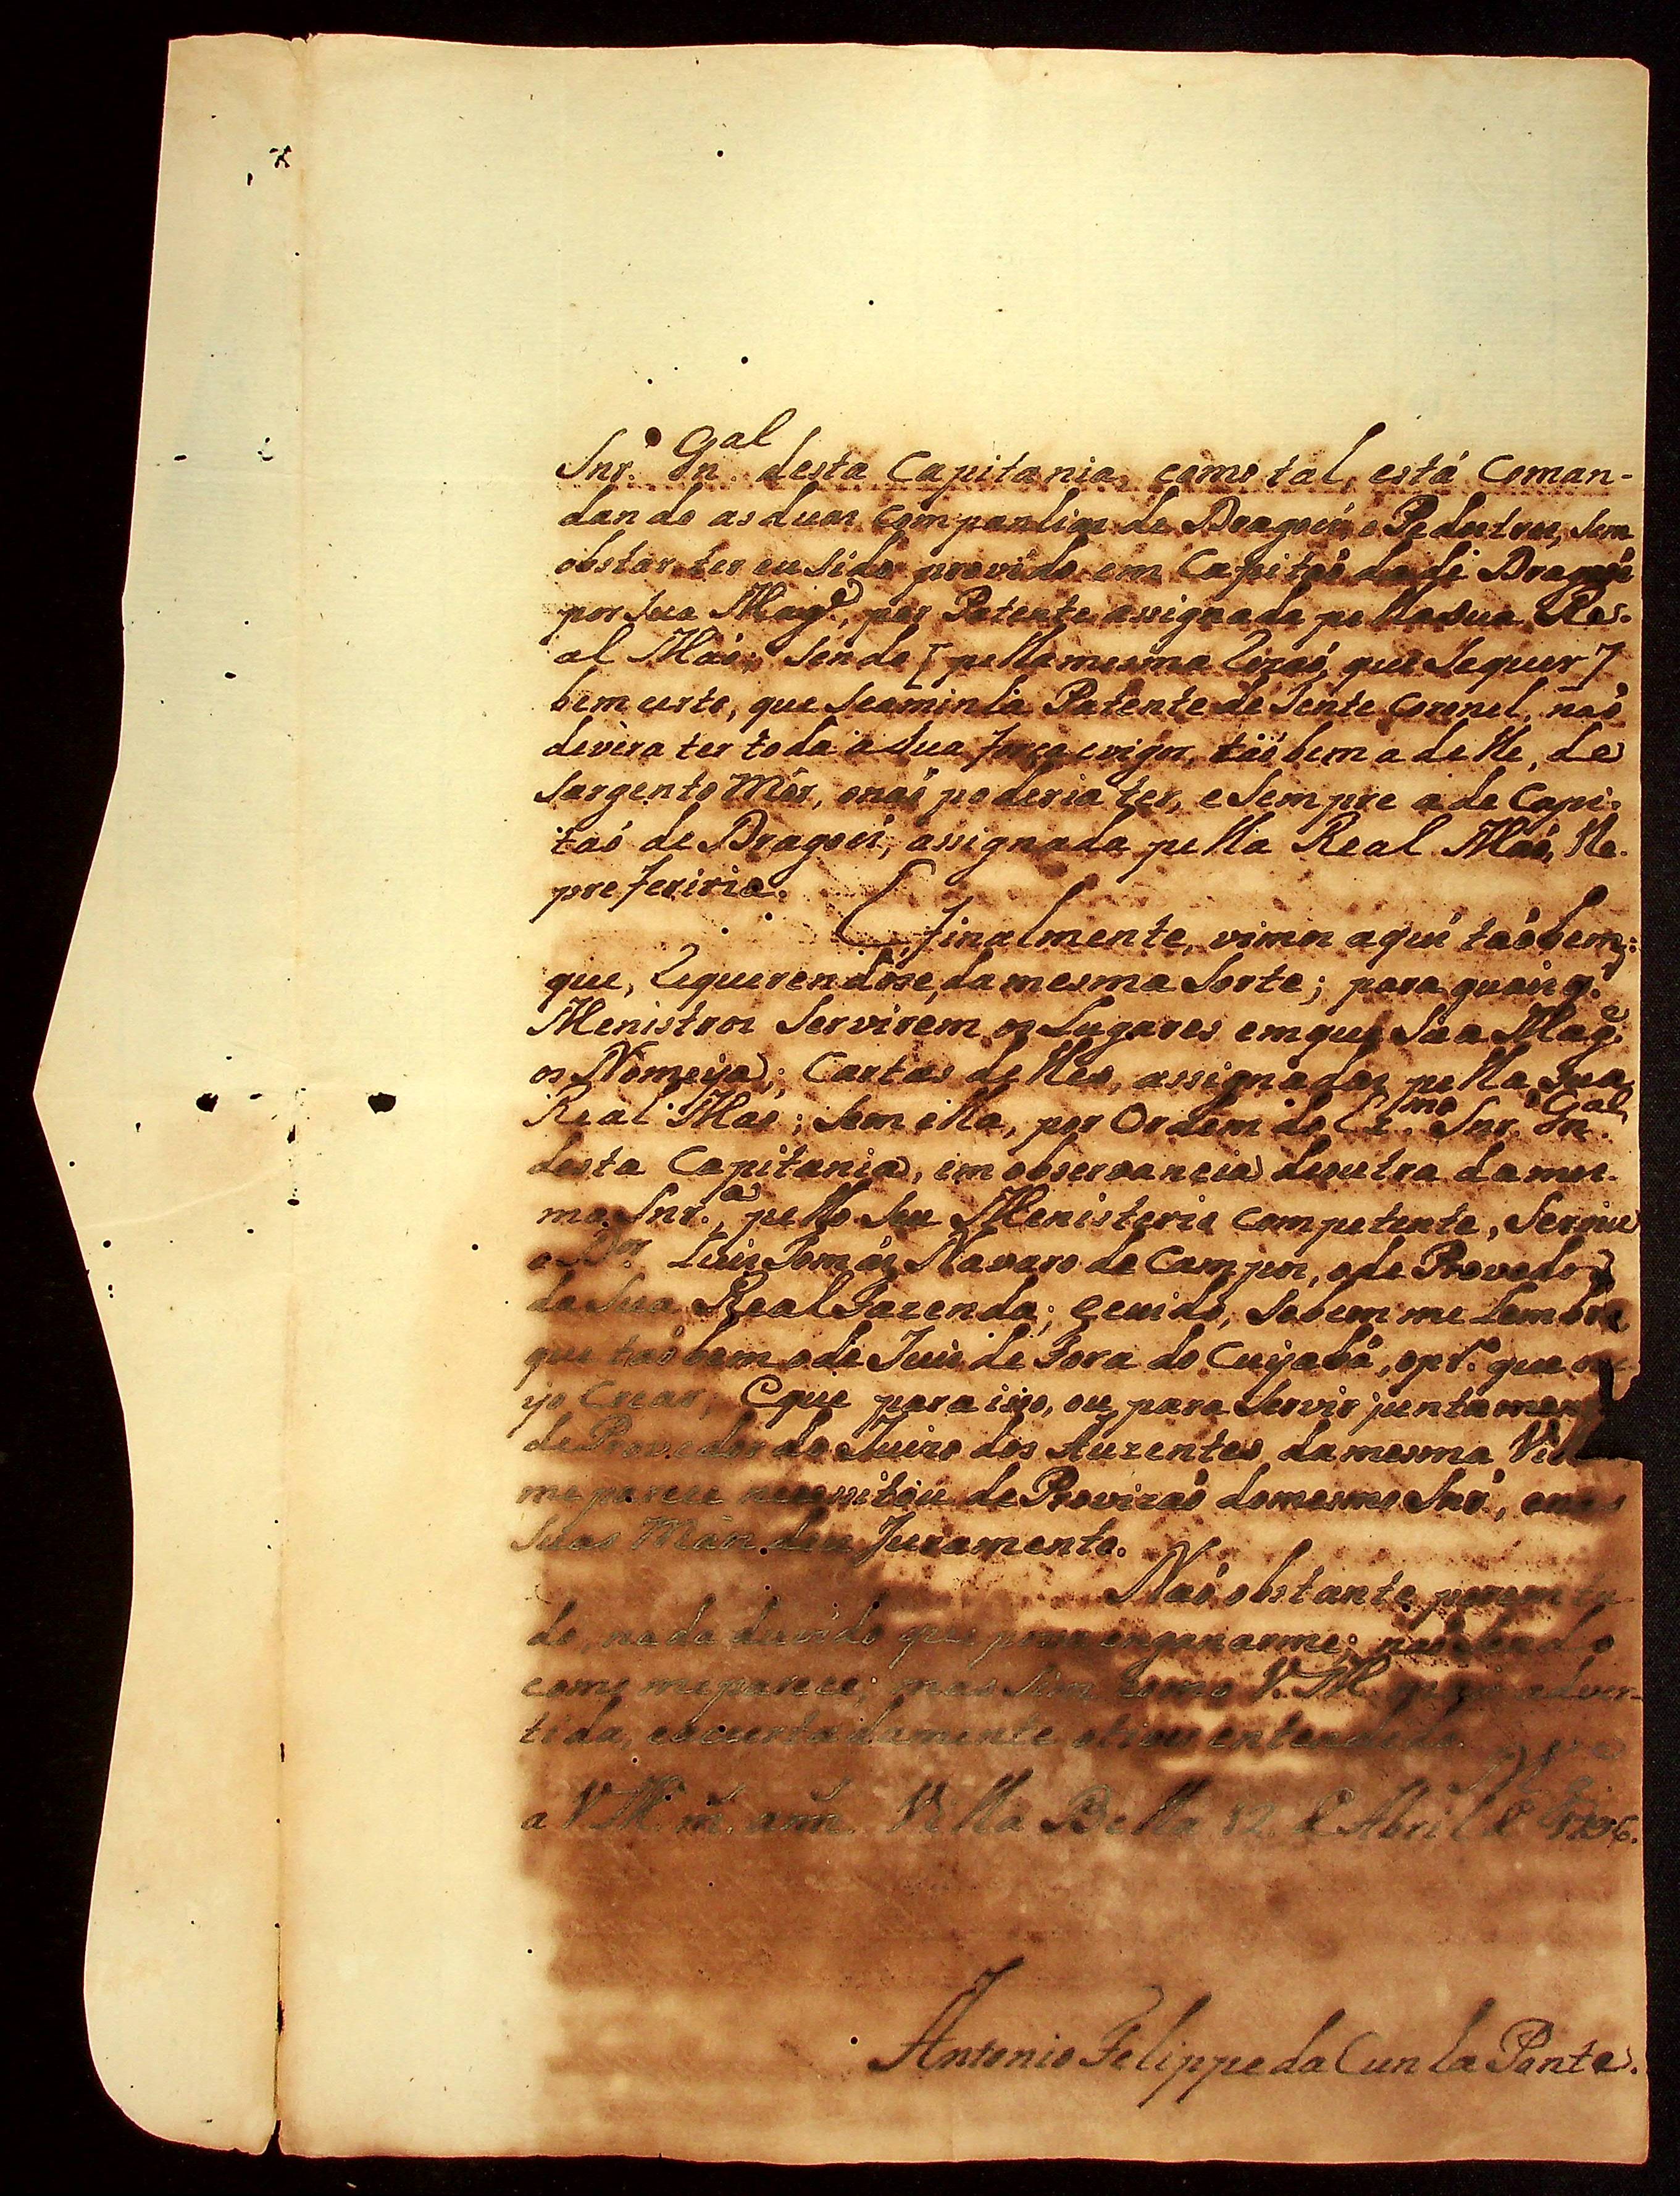 Snr. Gn.al desta Capitania, como tal, está Coman-
dando as duas Companhias de Dragoeñs, e Pedestres, sem
obstar ter eu sido provido em Capitaõ da de Dragoeñs
por Sua Mag.e, por Patente assignada pella sua Re-
al Maõ; sendo [pella mesma Rezaõ, que se quer]
bem certo, que se a minha Patente de Tente Coronel, naõ
devèra ter toda a sua força e vigor, taõbem a delle, de
Sargento Mór, o naõ poderia ter, e sempre a de Capi-
taõ de Dragoeñs, assignada pella Real Maõ, lhe
prefeririа.
E finalmente, vimos aqui taõbem:
que, Requerendose, da mesma sorte; para quaes q.r
Menistros Servirem os Lugares em que Sua Mag.e
os Nomeya; Cartas delles, assignadas pella Sua
Real Maõ; sem ella, por Ordem do Ex.mo Snr. Gn.al
desta Capitania, em observancia de outra da mes-
ma Snr.a, pello seu Menisterio competente, Servio
o D.or Luis Tomás Navarro de Campos, o de Provedor
da Sua Real Fazenda; e cuido, se bem me Lembra
que taõbem o de Juis de Fora do Cuyabá, o pr.o que
yo Crear; E que para isso, ou para servir juntamen
de Provedor do Juizo dos Auzentes da mesma Vill
me parece necessitou de Provizaõ do mesmo Snr., e nas
suas Maõs deu Juramento.
Naõ obstante porem tu-
do, nada duvido que possa enganarme; naõ sendo
como me parece; mas sim como V. M. adver-
tida, e acertadamente o tiver entendido.
a V. M. m. ann. Villa Bella 12 de Abril de 1796.
Antonio Felippe da Cunha Ponte.